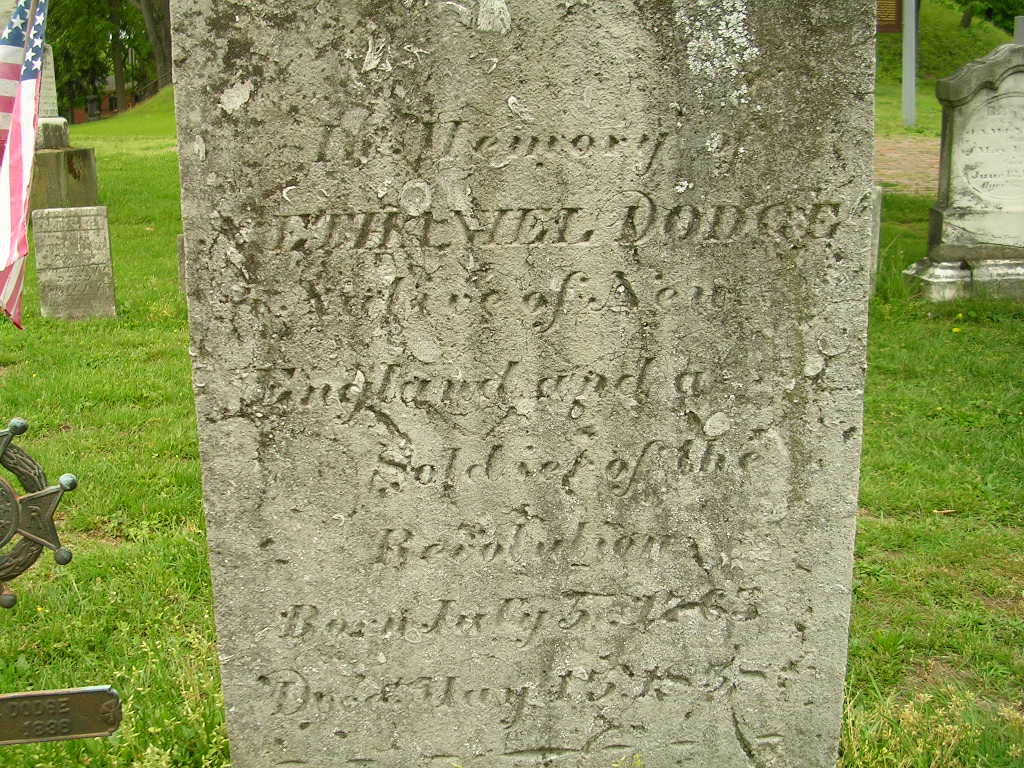 In Memory of
NETHANIEL DODGE
a Native of New
England and a
Soldier of the
Revolution
Born July 5, 1763
Died May 15,
DODGE
1838